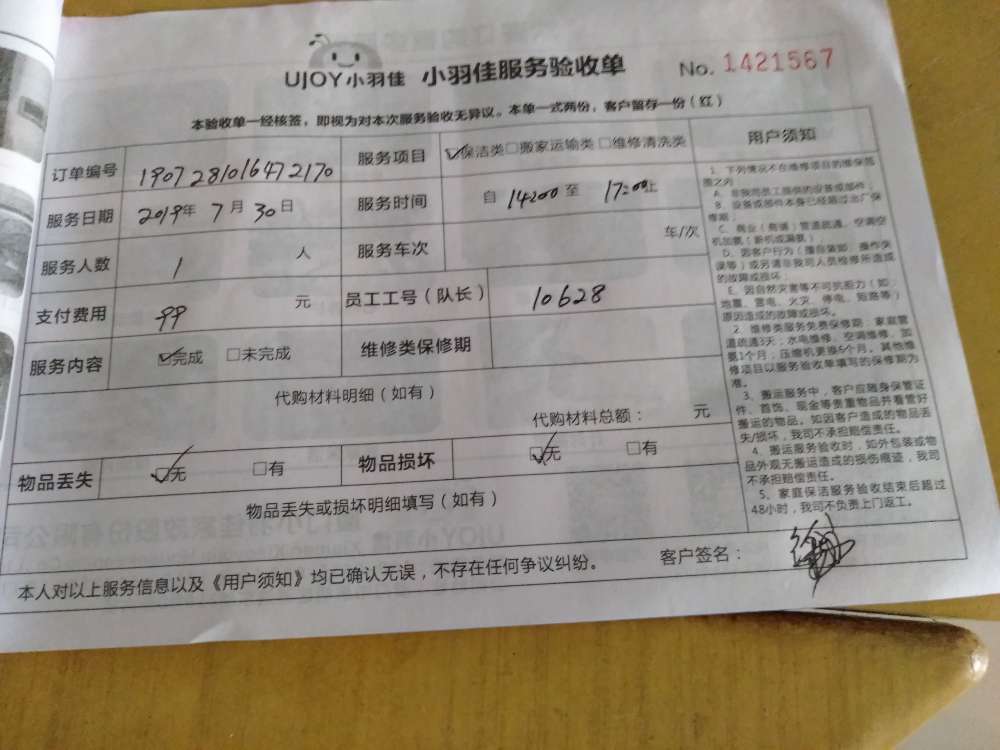 UJOY小羽佳 小羽佳服务验收单 No. 1421567
本验收单一经核签，即视为对本次服务验收无异议。本单一式两份，客户留存一份（红）
订单编号 190728101647 2170 服务项目 ☑保洁类□搬家运输类□维修清洗类
服务日期 2019年 7月 30日 服务时间 自 14:00 至 17:00止
服务人数 1 人 服务车次 车/次
支付费用 99 元 员工工号（队长） 10628
服务内容 ☑完成 □未完成 维修类保修期
代购材料明细（如有）
代购材料总额： 元
物品丢失 ☑无 □有 物品损坏 ☑无 □有
物品丢失或损坏明细填写（如有）
本人对以上服务信息以及《用户须知》均已确认无误，不存在任何争议纠纷。 客户签名：
用户须知
1、下列情况不在维修项目的维保范
围之内
A、非我司员工提供的设备或部件；
B、设备或部件本身已经超过出厂保
修期；
C、商业（商铺）管道疏通、空调空
机加氨（新机或漏氨）
D、因客户行为（擅自装卸、操作失
误等）或另请非我司人员检修所造成
的故障或损坏；
E、因自然灾害等不可抗拒力（如：
地震、雷电、火灾、停电、短路等）
原因造成的故障或损坏。
2、维修类服务免费保修期：家庭管
道疏通3天；水电维修、空调维修、加
氨1个月；压缩机更换6个月。其他维
修项目以服务验收单填写的保修期为
准。
3、搬运服务中，客户应随身保管证
件、首饰、现金等贵重物品并看管好
搬运的物品。如因客户造成的物品丢
失/损坏，我司不承担赔偿责任。
4、搬运服务验收时，如外包装或物
品外观无搬运造成的损伤痕迹，我司
不承担赔偿责任。
5、家庭保洁服务验收结束后超过
48小时，我司不负责上门返工。